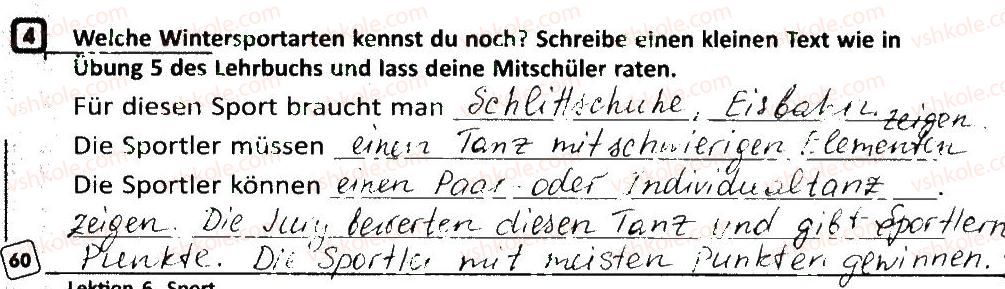 4 Welche Wintersportarten kennst du noch? Schreibe einen kleinen Text wie in
Übung 5 des Lehrbuchs und lass deine Mitschüler raten.
Für diesen Sport braucht man Schlittschuhe, Eisbahn.
Die Sportler müssen einen Tanz mit schwierigen Elementen zeigen
Die Sportler können einen Paar oder Individualtanz.
zeigen. Die Jury bewerten diesen Tanz und gibt Sportlern
60 Punkte. Die Sportler mit meisten Punkten gewinnen.
Lektion 6. Sport